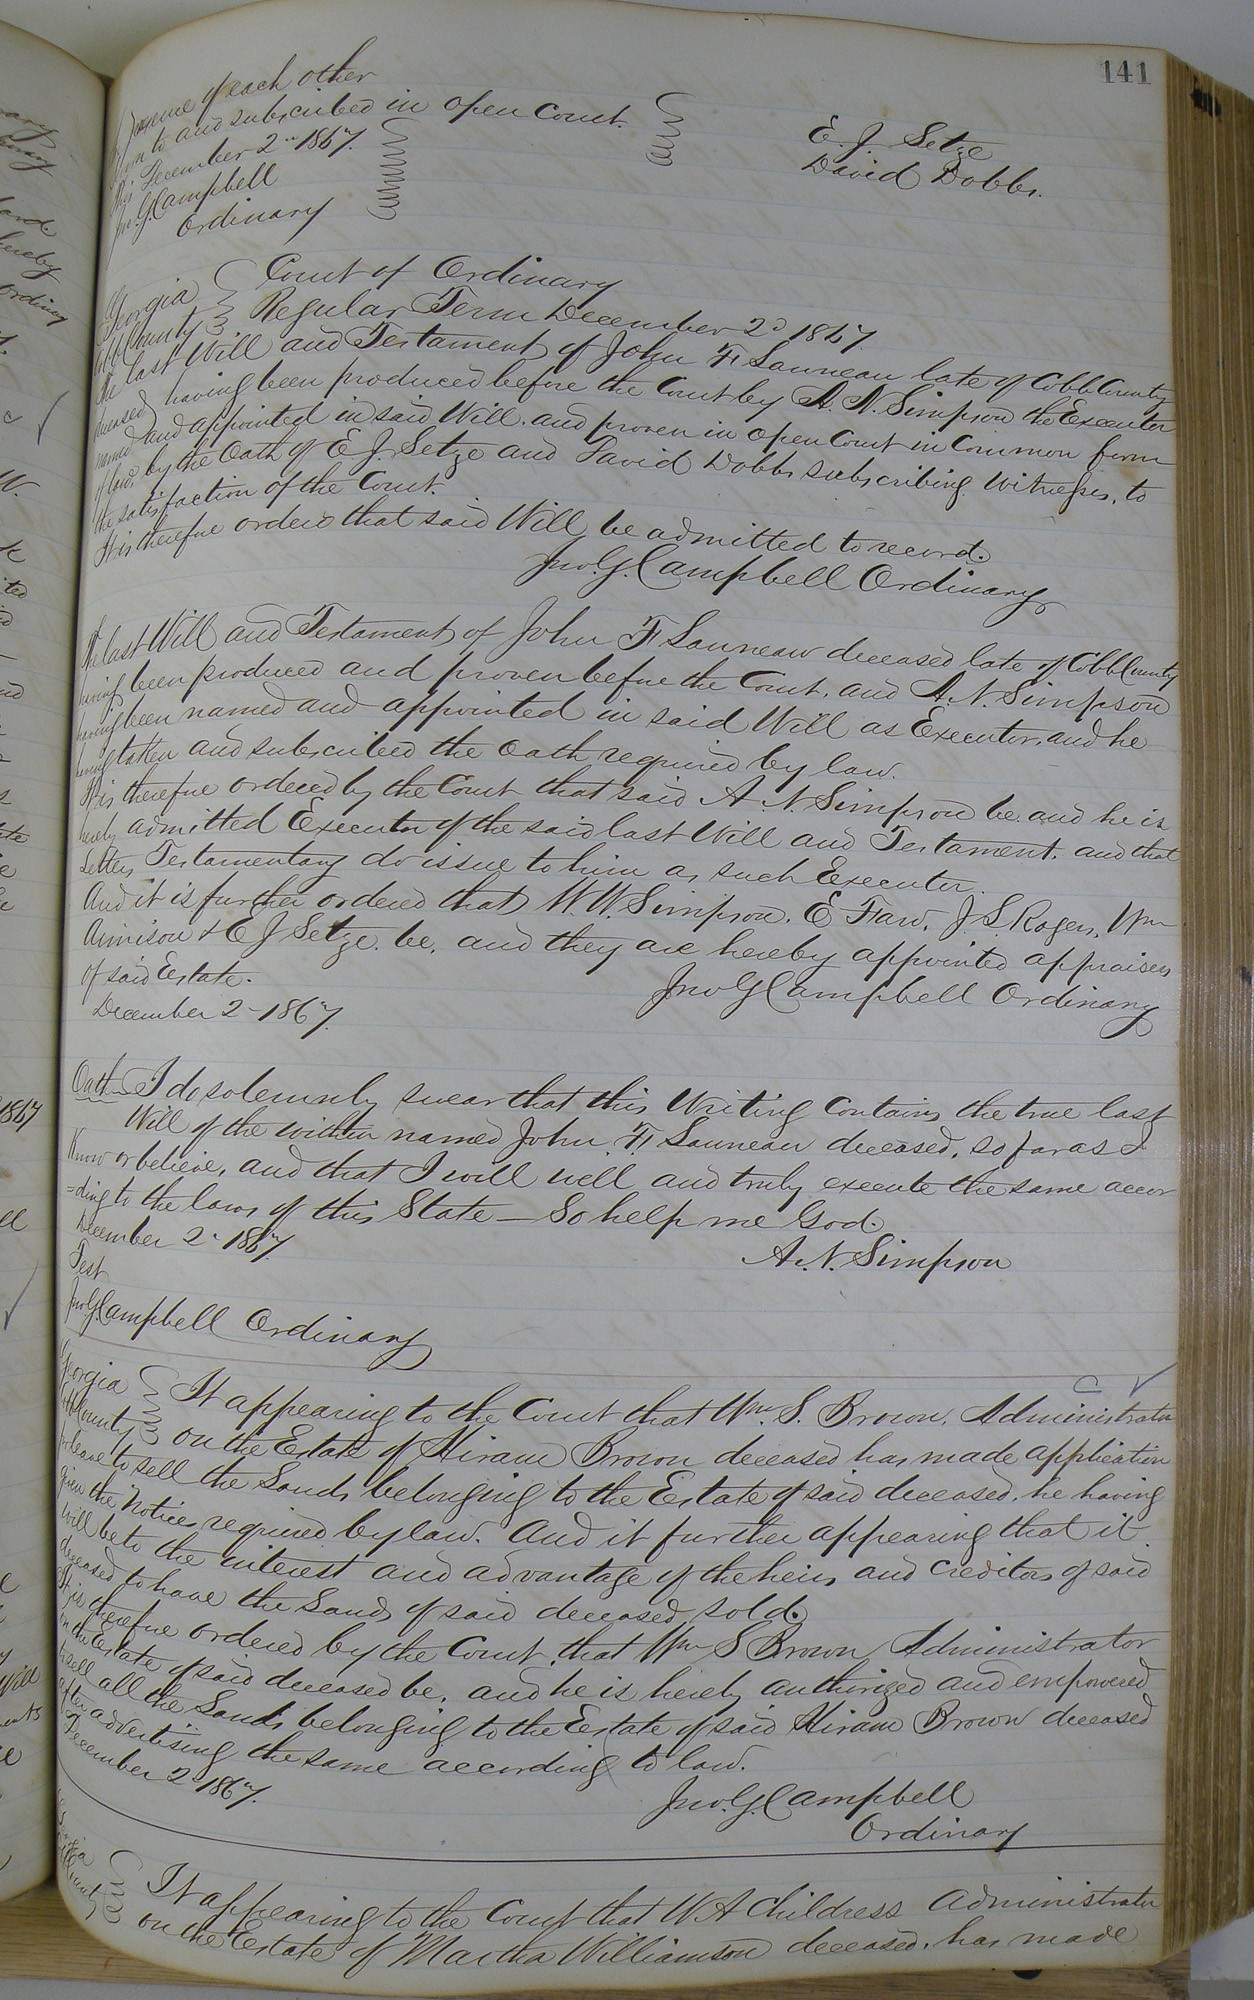 141
presence of each other
Sworn to and subscribed in open Court.
this December 2nd 1867.
Jno. G. Campbell
Ordinary
E. J. Setze
David Dobbs.
Georgia
Cobb County
Court of Ordinary
Regular Term December 2d 1867.
The last Will and Testament of John F. Sauneau late of Cobb County
deceased, having been produced before the Court by A. N. Simpson the Executor
named and appointed in said Will. and proven in open Court in Common form
of law, by the Oath of E J Setze and David Dobbs subscribing Witnesses, to
the satisfaction of the Court.
It is therefore orderd that said Will be admitted to record.
Jno. G. Campbell Ordinary
The last Will and Testament of John F Sauneau deceased late of Cobb County
having been produced and proven before the Court, and A. N. Simpson
having been named and appointed in said Will as Executor, and he
having taken and subscribed the Oath required by law.
It is therefore ordered by the Court that said A. N. Simpson be and he is
hereby admitted Executor of the said last Will and Testament. and that
Letters Testamentary do issue to him as such Executor.
And it is further ordered that W. W. Simpson, E Faw, J. S. Rogers, Wm
& E J Setze. be, and they are hereby appointed appraisers
of said Estate.
December 2 1867.
Jno G Campbell Ordinary
Oath I do solemnly swear that this Writing contains the true last
Will of the within named John F. Sauneau deceased, so far as I
Know or believe, and that I will well and truly execute the same accor
=ding to the laws of this State — So help me God.
December 2d 1867
A. N. Simpson
Test
Jno. G. Campbell Ordinary
Georgia
Cobb County
It appearing to the Court that Wm. S. Brown, Administrator
on the Estate of Hiram Brown deceased has made application
for leave to sell the Lands belonging to the Estate of said deceased, he having
given the Notices required by law. And it further appearing that it
will be to the interest and advantage of the heirs and Creditors of said
deceased to have the Lands of said deceased sold.
It is therefore ordered by the Court, that Wm S Brown Administrator
on the Estate of said deceased be, and he is hereby authorized and empowered
to sell all the Lands belonging to the Estate of said Hiram Brown deceased
after advertising the same according to law.
December 2d 1867.
Jno. G. Campbell
Ordinary
Georgia
Cobb County
It appearing to the Court that W. A Childress Administrator
on the Estate of Martha Williamson deceased. has made